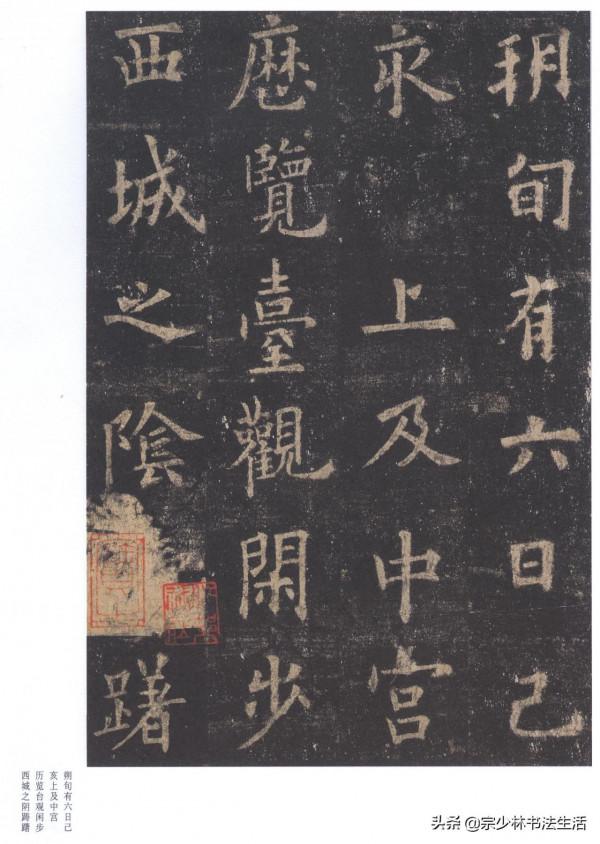 朔旬有六日己
亥上及中宫
歷覽臺觀閑步
西城之陰躇
朔旬有六日己
亥上及中宫
历览台观闲步
西城之阴踌躇
头条@宗少林书法生活